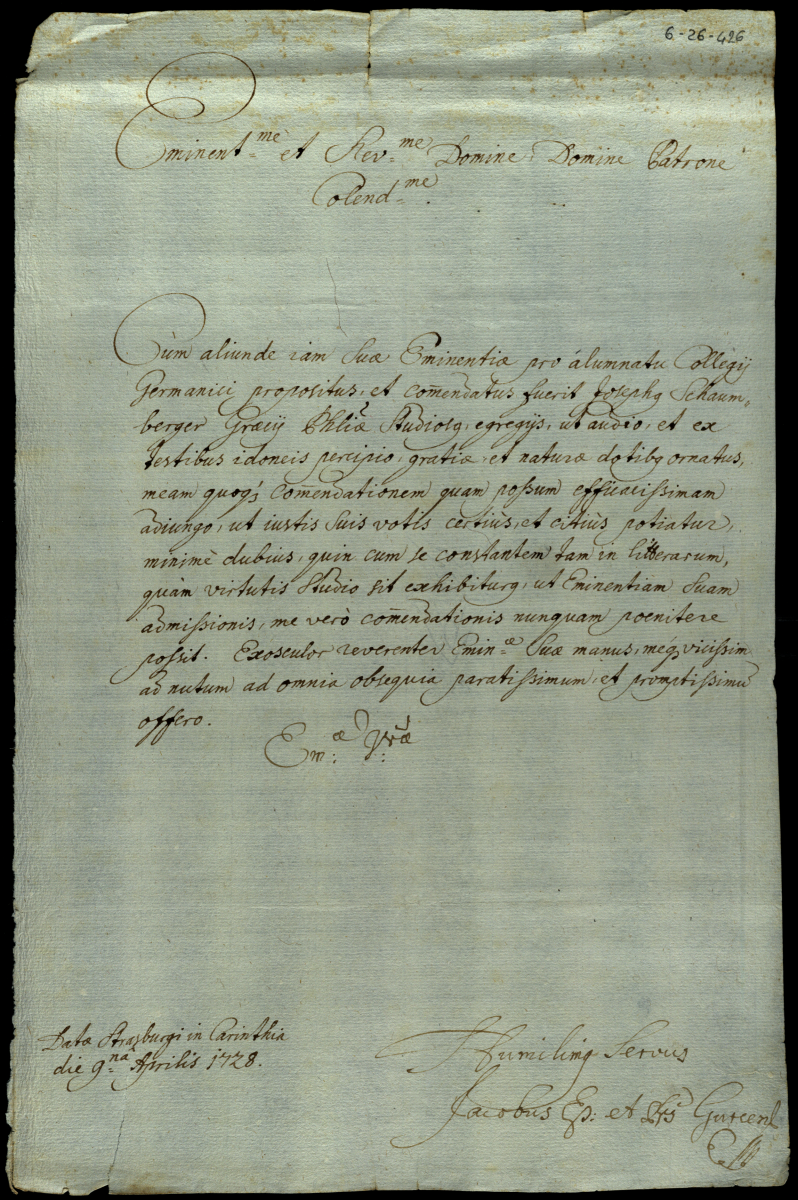 6-26-426
Eminent.me et Rev.me Domine Domine Patrone
Colend.me
Cùm aliunde iam Suæ Eminentiæ pro álumnatu Collegÿ
Germanici propositus, et com̄endatus fuerit Josephg Schaum-
berger Græcÿ Phliæ Studiosg, egregÿs, ut audio, et ex
testibus idoneis percipio, gratiæ, et naturæ dotibg ornatus,
meam quoq́; com̄endationem quam possum efficacissimam
adiungo, ut iustis suis votis certiùs, et citiùs potiatur,
minimè dubius, quin cum se constantem tam in litterarum,
quàm virtutis studio sit exhibiturg, ut Eminentiam Suam
admissionis, me verò com̄endationis nunquam poenitere
possit. Exosculor reverenter Emin.æ Suæ manus, meq́; vicissim
ad nutum ad omnia obsequia paratissimum, et promptissimū
offero.
Em:æ Vræ
Datæ Strasburgi in Carinthia
die 9.na Aprilis 1728.
Humilimg Servus
Jacobus Ep: et Prs Gurcens